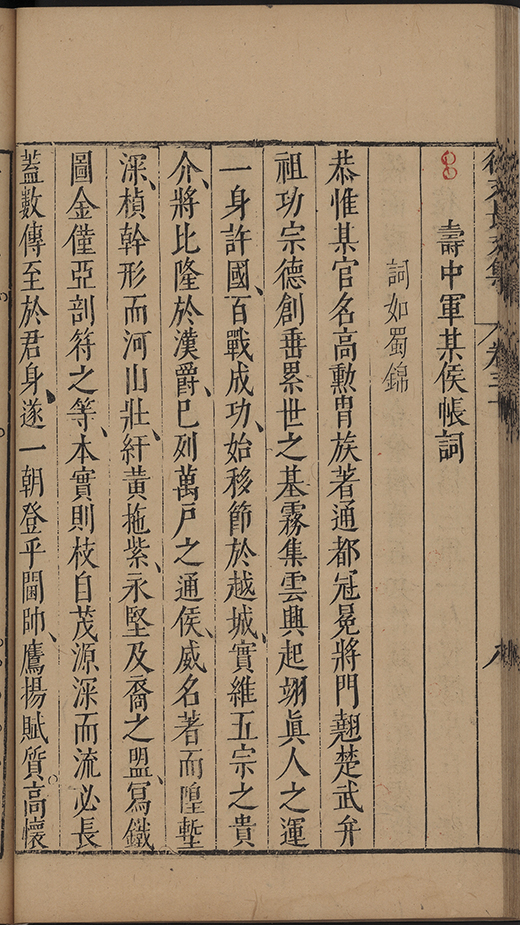 徐文長文集 卷三十
壽中軍某侯帳詞
詞如蜀錦
恭惟某官名高勲胄族著通都冠冕將門翹楚武弁
祖功宗德創垂累世之基霧集雲興起翊眞人之運
一身許國、百戰成功、始移節於越城、實維五宗之貴
介、將比隆於漢爵、已列萬戸之通侯、威名著而隍塹
深、楨幹形而河山壯、紆黃拖紫、永堅及裔之盟、寫鐵
圖金僅亞剖符之等、本實則枝自茂源深而流必長
蓋數傳至於君身、遂一朝登乎閫帥、鷹揚賦質。高懷